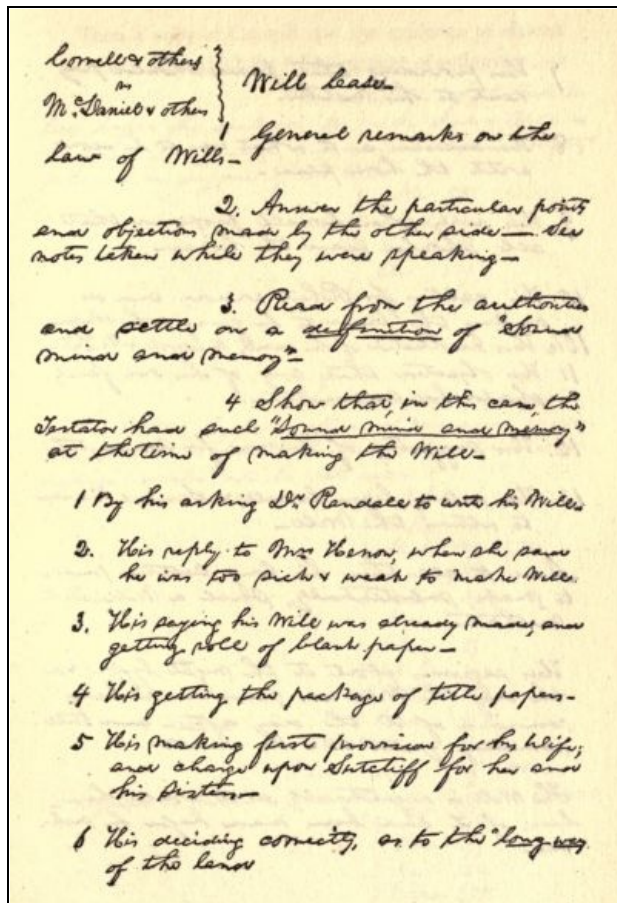 Correll & others
vs
McDaniel & others
Will Case—
1 General remarks on the
law of Wills—
2. Answer the particular points
and objections made by the other side— See
notes taken while they were speaking—
3. Read from the authorities
and settle on a definition of "Sound
mind and memory"—
4 Show that, in this case, the
Testator had such "Sound mind and memory"
at the time of making the Will—
1 By his asking Dr. Randall to write his Will.
2. His reply to Mrs when she said
he was too sick & weak to make Will.
3. His saying his Will was already made, and
getting roll of blank paper—
4 His getting the package of title papers—
5 His making first provision for his Wife,
and charge upon Sutcliff for her and
his sisters—
6 His deciding correctly, as to the "long way
of the land